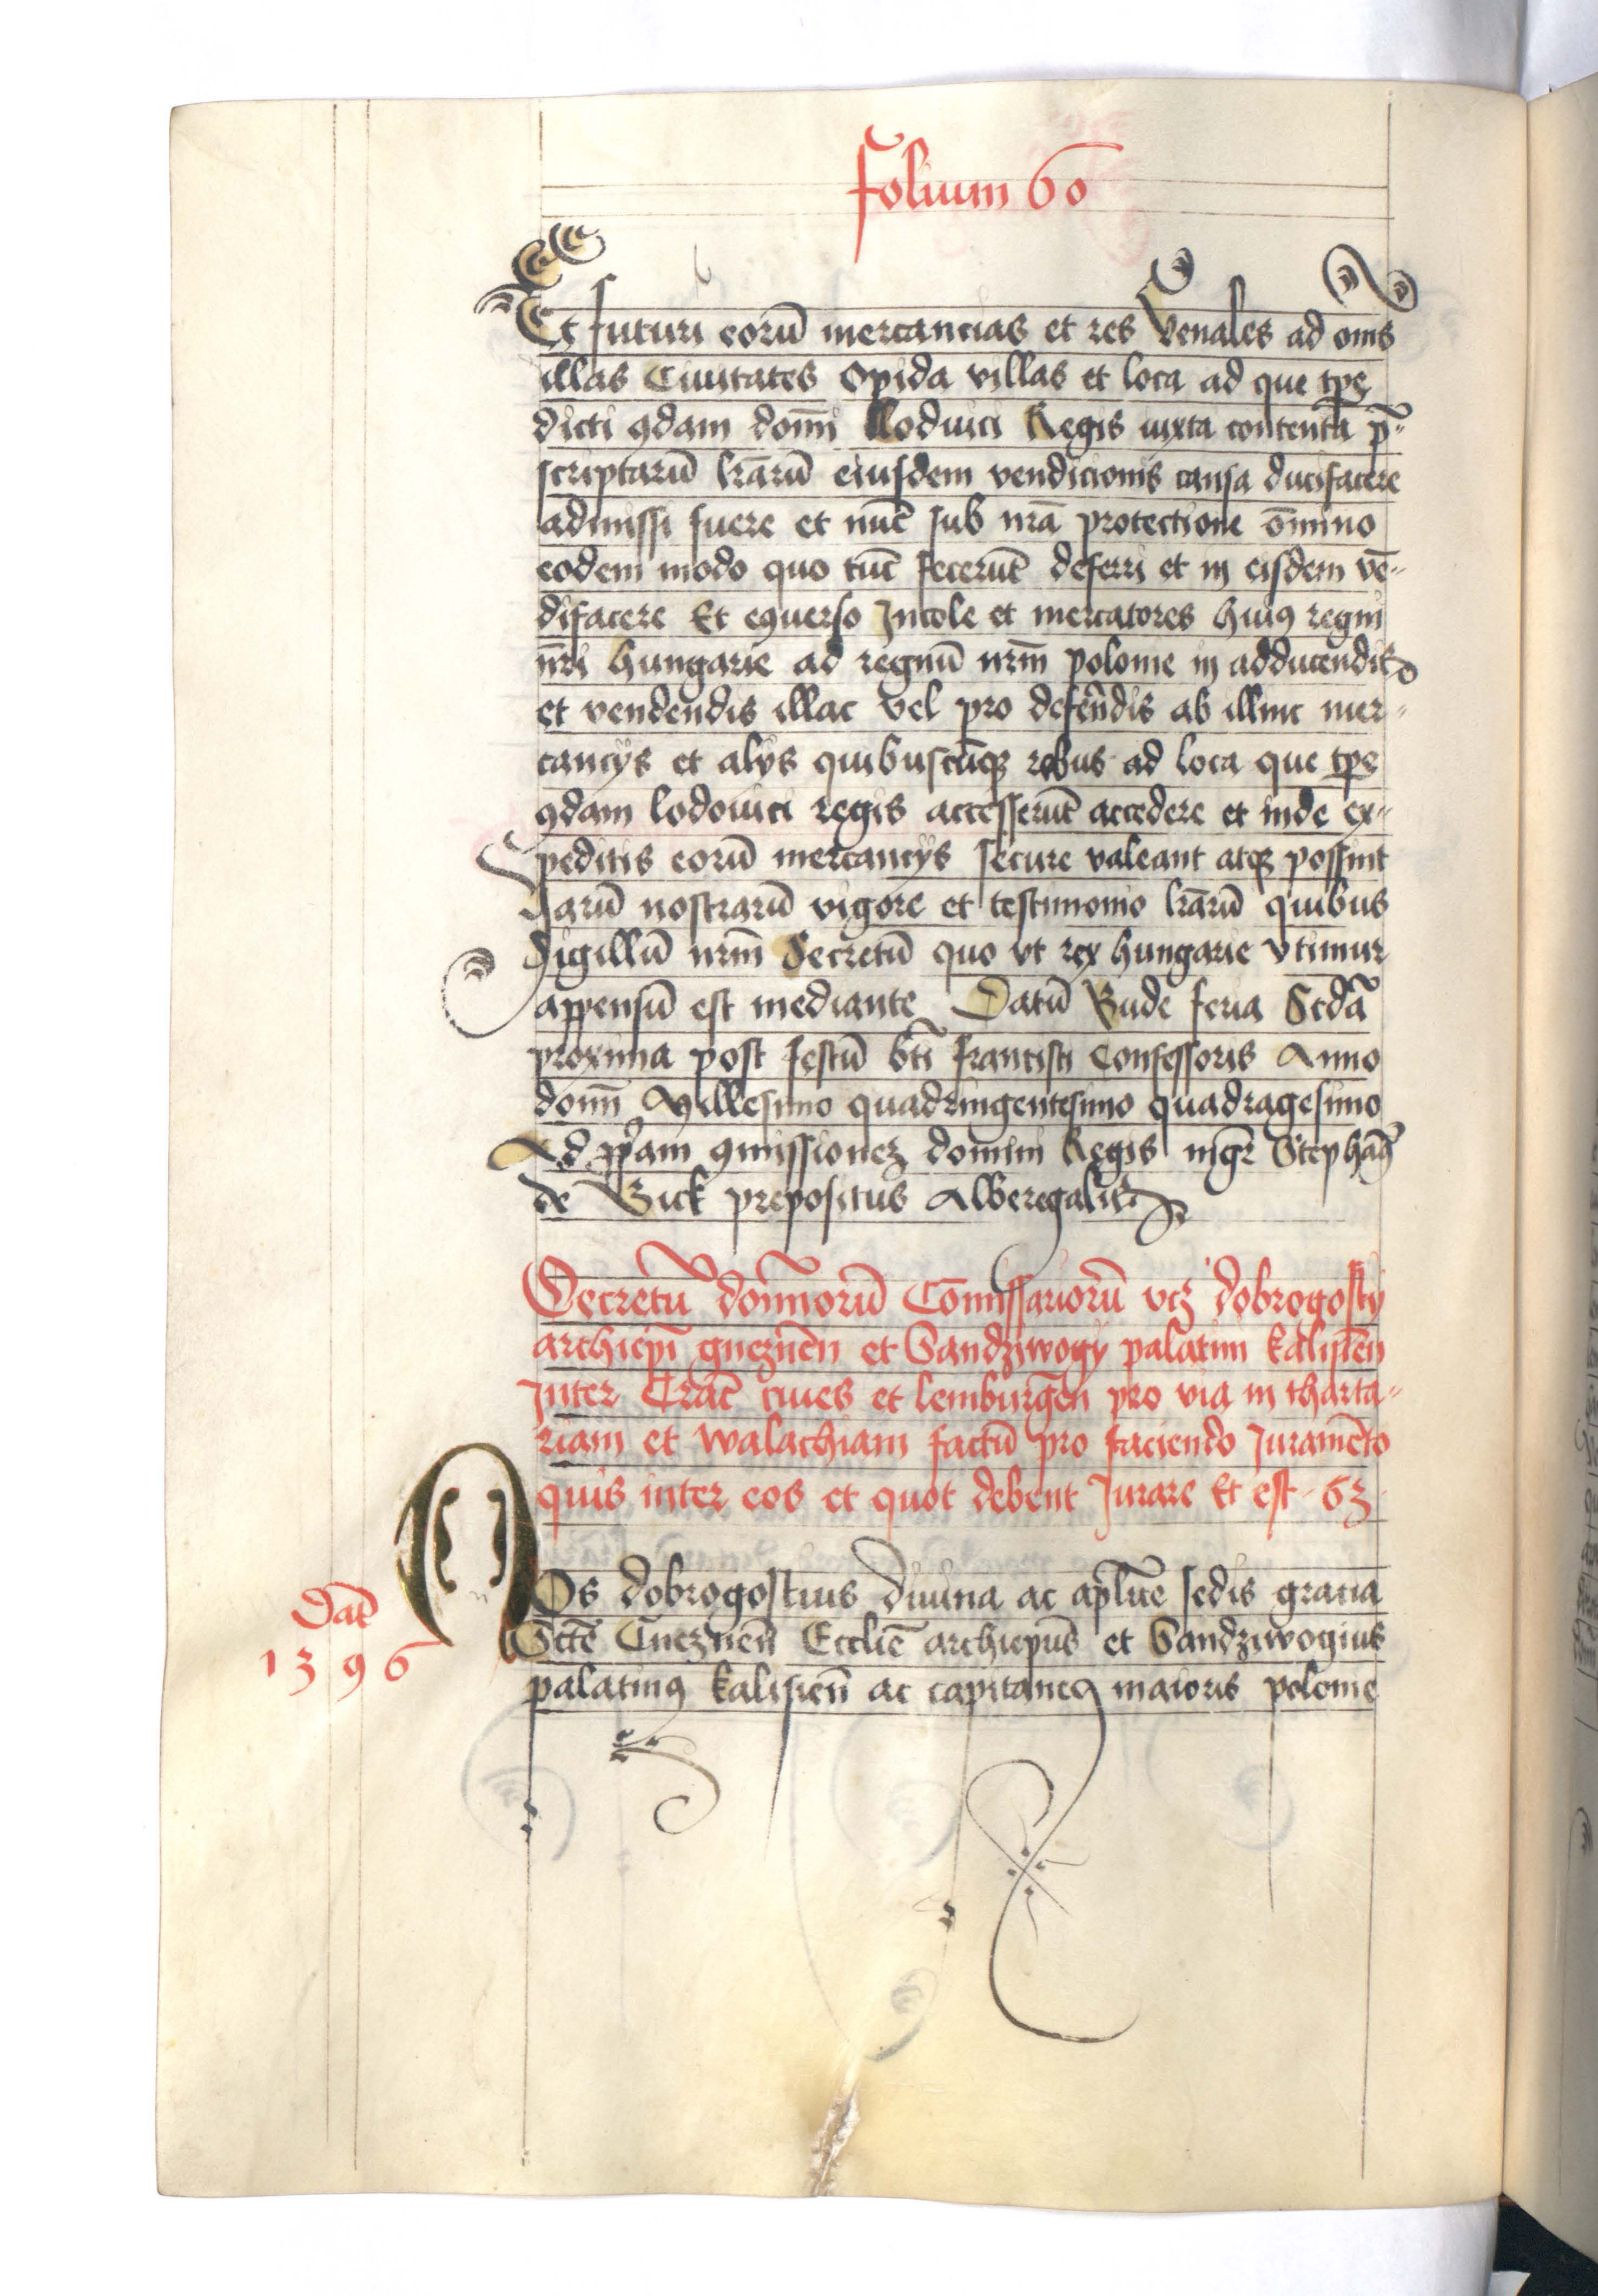 Folium 60
Et futuri eorū mercancias et res Venales ad oms̄
illas Ciuitates Opida villas et loca ad que tpe
dicti qdam domī Loduici Regis iuxta contenta p̄-
scriptarū lr̄arū eiusdem vendicionis causa ducifacere
admissi fuere et nūc sub nr̄a protectione ōmino
eodem modo quo tūc fecerūt deferri et in eisdem vē-
difacere Et equerso Incole et mercatores huiq regni
nr̄i hungarie ad regnū nrm̄ polonie in adducendis
et vendendis illac vel pro defēndis ab illinc mer-
cancijs et alijs quibuscūqz rebus ad loca que tpe
qdam lodouici regis accesserūt accedere et inde ex-
peditis eorū mercancijs secure valeant atqz possint
harū nostrarū vigore et testimonio lr̄arū quibus
Sigillū nrm̄ Secretū quo vt rex hungarie vtimur
appensū est mediante Datū Bude feria Scdā
proxima post festū bt̄i francisci Confessoris Anno
domī Millesimo quadringentesimo quadragesimo
Ad pp̄am qmissionez domini Regis mgr̄ Stephāq
de Bick prepositus Alberegalis
Decretū domīnorū Cōmissariorū vcz dobrogostij
archiepī gneznēn et Sandziwogij palatini kalisiēn
Inter Crac̄ ciues et lemburgēn pro via in tharta-
riam et walachiam factū pro faciendo Juramēto
quis inter eos et quot debent Jurare Et est 63
NOs dobrogostius diuina ac apl̄ice sedis gratia
Scte Gneznēn Ecclie archiepūs et Sandziwogius
palatinq kalisiēn ac capitaneq maioris polonie
Dat̄
1396